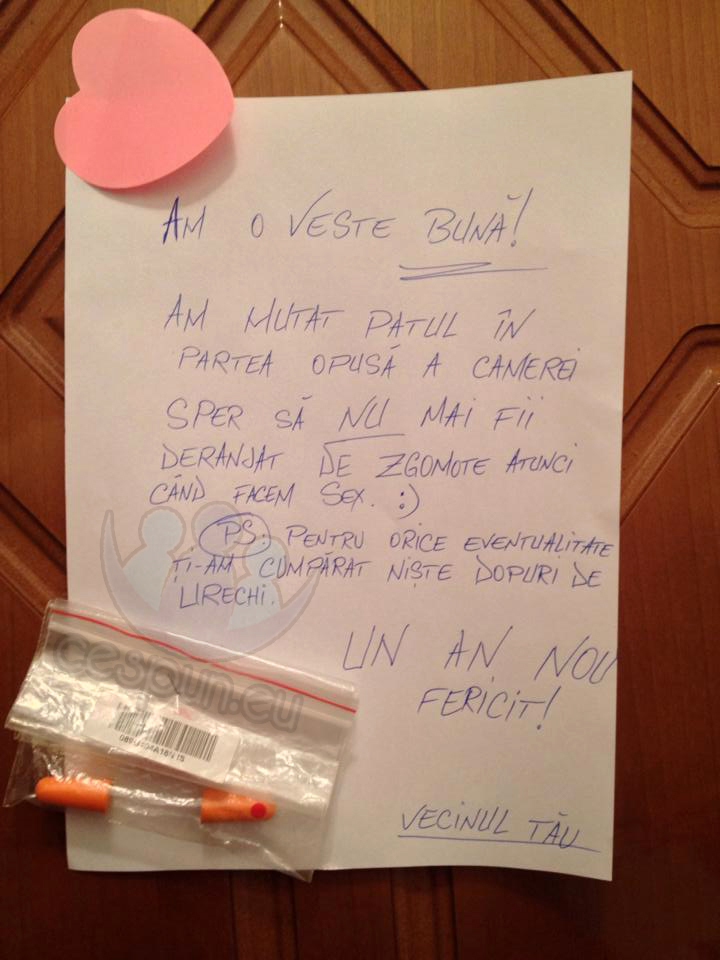 AM O VESTE BUNĂ!
AM MUTAT PATUL ÎN
PARTEA OPUSĂ A CAMEREI
SPER SĂ NU MAI FII
DERANJAT DE ZGOMOTE ATUNCI
CÂND FACEM SEX. :)
PS: PENTRU ORICE EVENTUALITATE
ȚI-AM CUMPĂRAT NIȘTE DOPURI DE
URECHI.
UN AN NOU
FERICIT!
VECINUL TĂU
cespun.eu